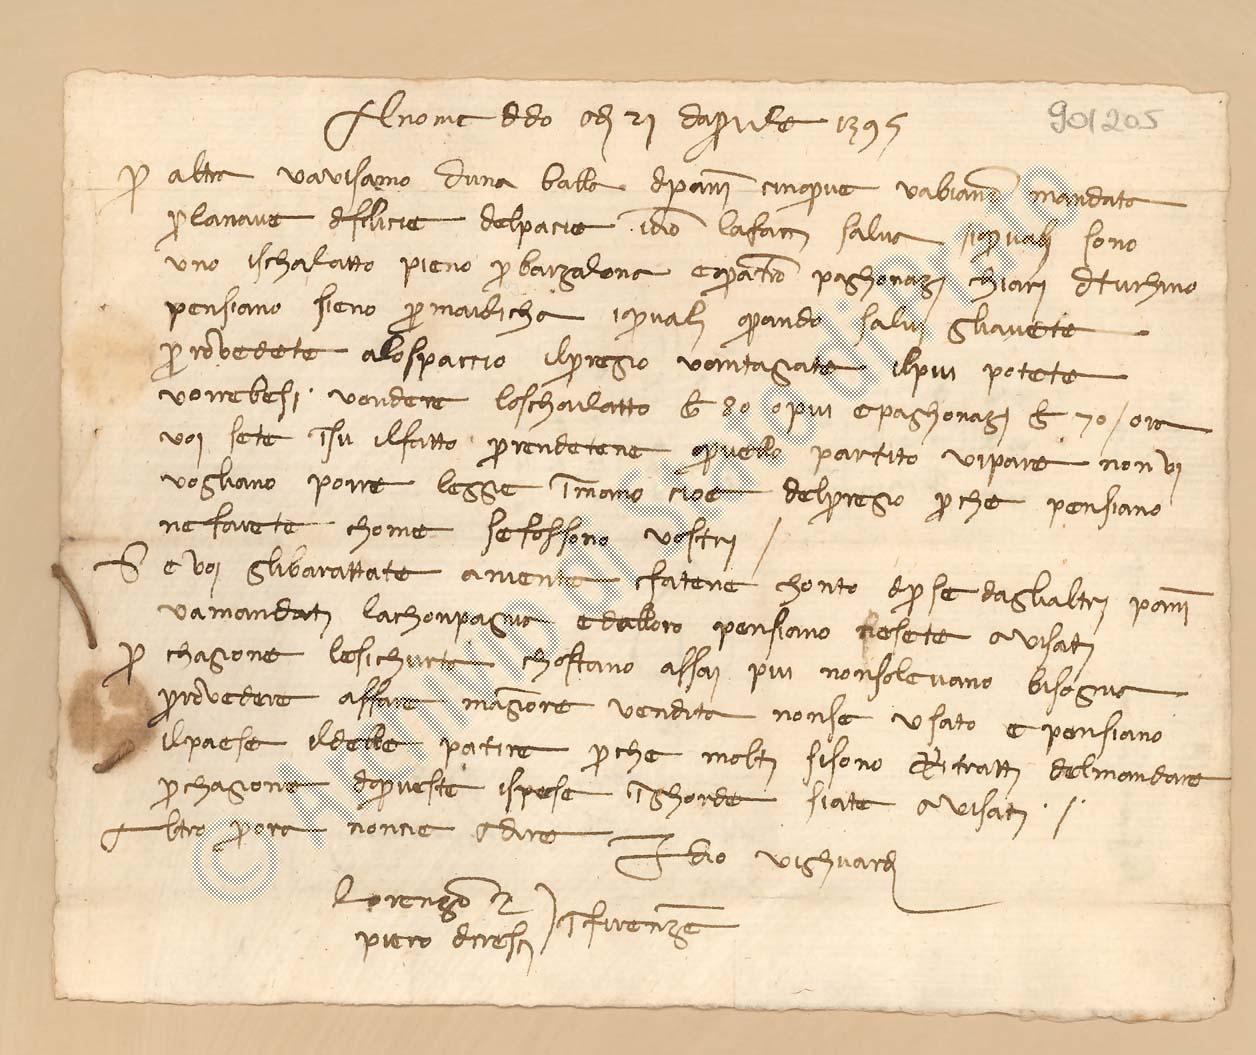 Al nome d dio adi 21 daprile 1395
901/205
p altra vavisamo duna balla d pani cinque vabiano mandata
p la nave d filicie del pacie idio la facci salva i quali sono
uno ischalatto pieno p barzalona e quatro paghonazi chiari d turchino
pensiano sieno p maiolicha i quali quando salvi gli avete
provedete a lo spaccio il pregio vantagate il piu potete
vorrebesi vendere lo scharlatto £ 80 o piu e paghonazi £ 70 / ora
voi sete i su il fatto prendetene quello partito vi pare non vi
vogliano porre leggie i mano cioe del pregio p che pensiano
ne farete chome se fossono vostri /
S e voi gli barattate a niente cfatene chonto d p se dagli altri pani
va mandati la chonpagnia e da lloro pensiano ne sete avisati
p chagione le sichurta chostano assai piu non solevano bisogna
provedere affare magiore vendita non se usato e pensiano
il paese il debbe patire p che molti si sono ritratti del mandare
p chagione d queste ispese i ghorde siate avisati /
Altro p ora non cie a dire Idio vi ghuardi
Lorenzo e
piero d cresci i firenze
© Archivio di Stato di Prato